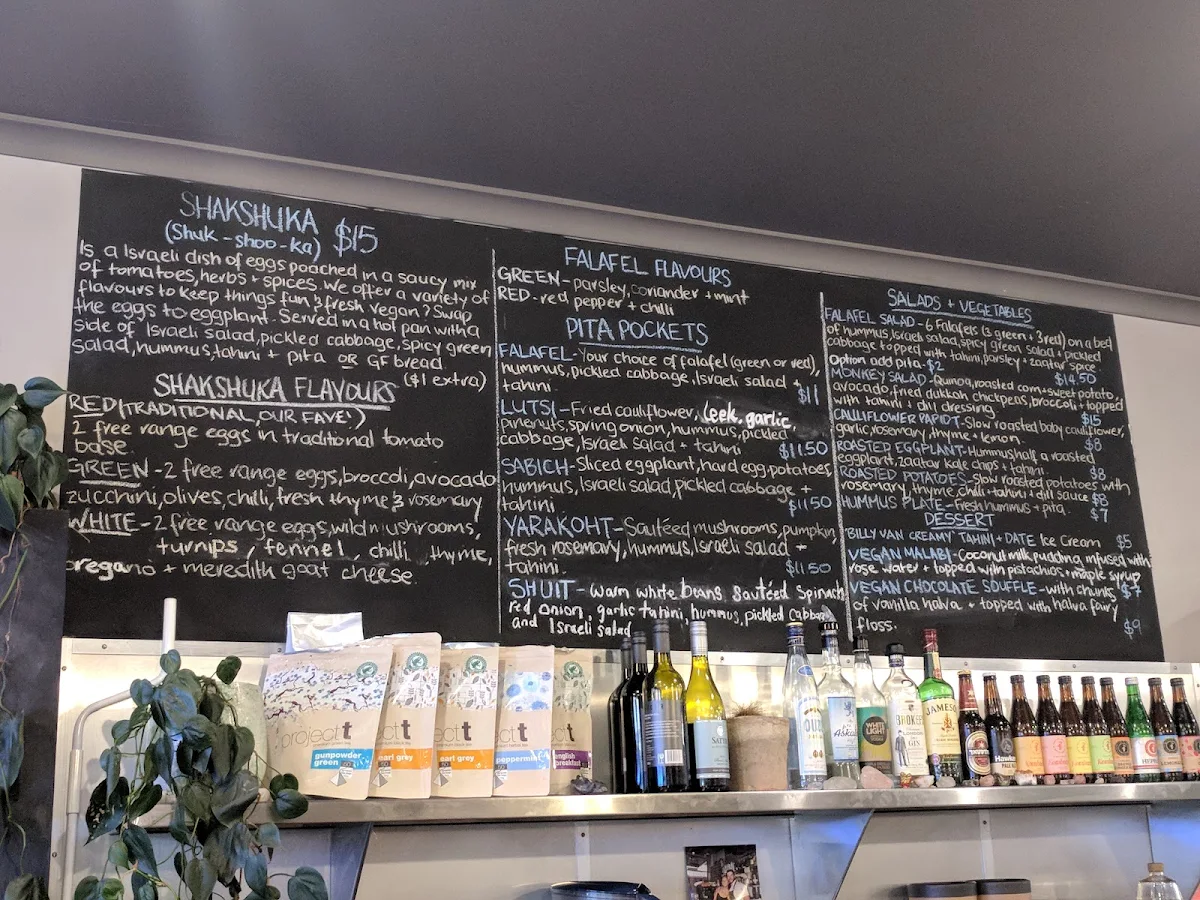 SHAKSHUKA $15
(Shuk-shoo-ka)
Is a Israeli dish of eggs poached in a saucy mix
of tomatoes, herbs + spices. We offer a variety of
flavours to keep things fun & fresh vegan? Swap
the eggs to eggplant. Served in a hot pan with a
side of Israeli salad, pickled cabbage, spicy green
salad, hummus, tahini + pita OR GF bread
($1 extra)
SHAKSHUKA FLAVOURS
RED (TRADITIONAL, OUR FAVE')
2 free range eggs in traditional tomato
base.
GREEN - 2 free range eggs, broccoli, avocado
zucchini, olives, chilli, fresh thyme & rosemary
WHITE - 2 free range eggs, wild mushrooms,
turnips, fennel, chilli, thyme,
oregano + meredith goat cheese
FALAFEL FLAVOURS
GREEN - parsley, coriander + mint
RED - red pepper + chilli
PITA POCKETS
FALAFEL - Your choice of falafel (green or red),
hummus, pickled cabbage, Israeli salad +
tahini $11
LUTSI - Fried cauliflower, leek, garlic,
pinenuts, spring onion, hummus, pickled
cabbage, Israeli salad + tahini $11.50
SABICH - Sliced eggplant, hard egg, potatoes,
hummus, Israeli salad, pickled cabbage +
tahini $11.50
YARAKOHT - Sautéed mushrooms, pumpkin,
fresh rosemary, hummus, Israeli salad +
tahini. $11.50
SHUIT - Warm white beans, Sautéed Spinach
red onion, garlic tahini, hummus, pickled Cabbage
and Israeli salad
SALADS + VEGETABLES
FALAFEL SALAD - 6 Falafels (3 green + 3 red) on a bed
of hummus, Israeli salad, spicy green salad + pickled
cabbage topped with tahini, parsley + zaatar spice.
Option add pita - $2 $14.50
MONKEY SALAD - Quinoa, roasted corn + sweet potato,
avocado, fried dukkah chickpeas, broccoli + topped
with tahini + dill dressing. $15
CAULIFLOWER PAPIOT - Slow roasted baby cauliflower,
garlic, rosemary, thyme + lemon. $8
ROASTED EGGPLANT - Hummus, half a roasted
eggplant, zaatar kale chips + tahini. $8
ROASTED POTATOES - Slow roasted potatoes with
rosemary, thyme, chilli + tahini + dill sauce $8
HUMMUS PLATE - Fresh hummus + pita. $7
DESSERT
BILLY VAN CREAMY TAHINI + DATE Ice Cream $5
VEGAN MALABI - Coconut milk pudding infused with
rose water + topped with pistachios + maple syrup
$7
VEGAN CHOCOLATE SOUFFLE - with chunks
of vanilla halva + topped with halva fairy
floss. $9
project t
gunpowder
green
earl grey
earl grey
peppermint
english
breakfast
WHITE
LIGHT
BROKER'S
GIN
JAMESON